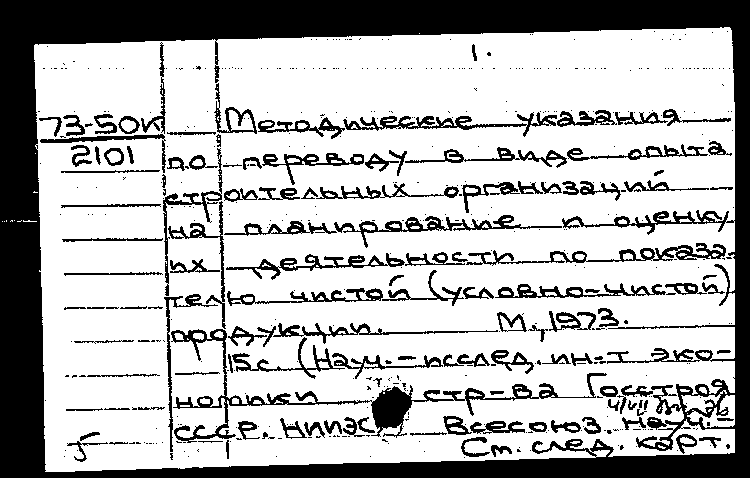 1.
73-50К Методические указания
2101 по переводу в виде опыта
строительных организаций
на планирование и оценку
их деятельности по показа-
телю чистой (условно-чистой)
продукции. М., 1973.
15с. (Науч.-исслед. ин-т эко-
номики стр-ва Госстроя
СССР. НИИЭС Всесоюз. науч.-
5 См. след. карт.